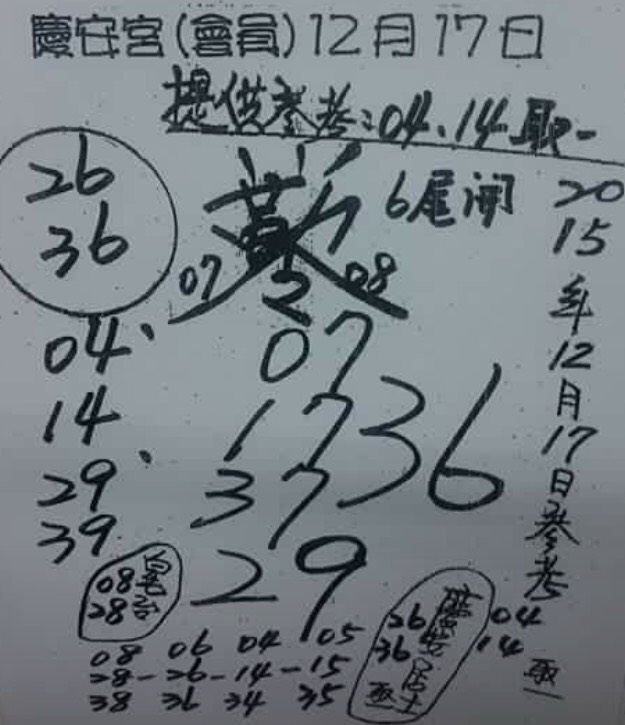 慶安宮(會員)12月17日
提供參考:04、14取一
26
36
6尾開
2015年12月17日參考
07 08
2
04、
14
29、
39
07
17
37
29
36
08
28
26
36
04
14
08 06 04 05
28-26-14-15
38 36 34 35